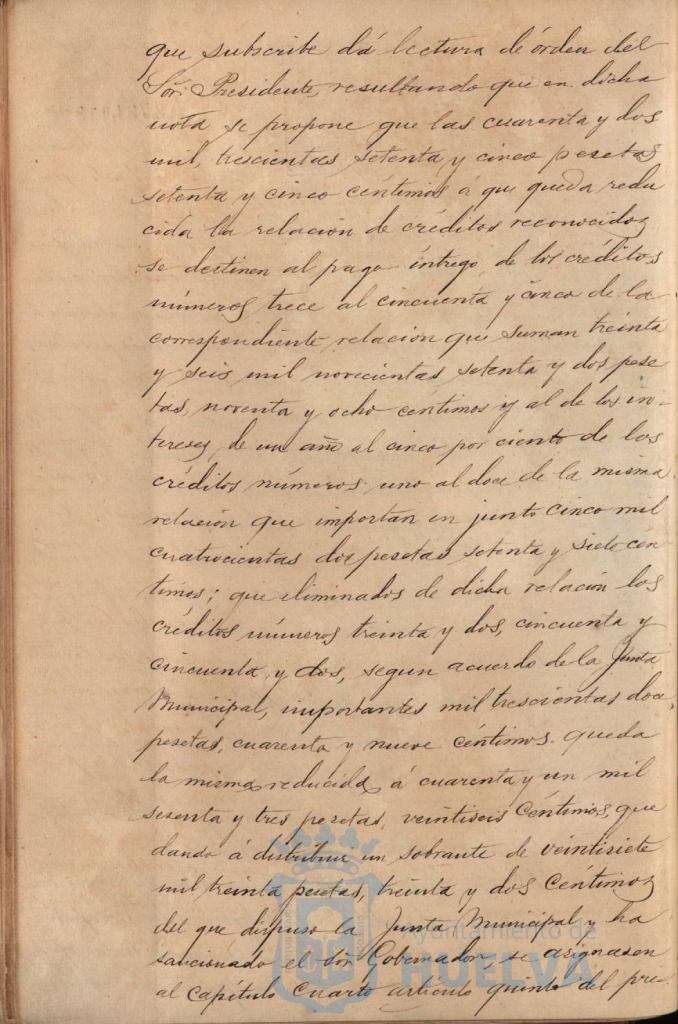 que subscribe dá lectura de órden del
Sor. Presidente, resultando que en dicha
nota se propone que las cuarenta y dos
mil, trescientas setenta y cinco pesetas
setenta y cinco céntimos á que queda redu
cida la relación de créditos reconocidos
se destinen al pago íntegro de los créditos
números trece al cincuenta y cinco de la
correspondiente relación que suman treinta
y seis mil novecientas setenta y dos pese
tas, noventa y ocho céntimos y al de los in-
tereses de un año al cinco por ciento de los
créditos números uno al doce de la misma
relación que importan en junto cinco mil
cuatrocientas dos pesetas setenta y siete cén
timos; que eliminados de dicha relación los
créditos números treinta y dos, cincuenta y
cincuenta y dos, segun acuerdo de la Junta
Municipal, importantes mil trescientas doce
pesetas, cuarenta y nueve céntimos queda
la misma reducida á cuarenta y un mil
sesenta y tres pesetas, veintiseis céntimos, que
dando á distribuir un sobrante de veintisiete
mil treinta pesetas, treinta y dos céntimos
del que dispuso la Junta Municipal y ha
sancionado el Sor. Gobernador se asignasen
al Capítulo Cuarto artículo quinto del pre-
Ayuntamiento de
HUELVA